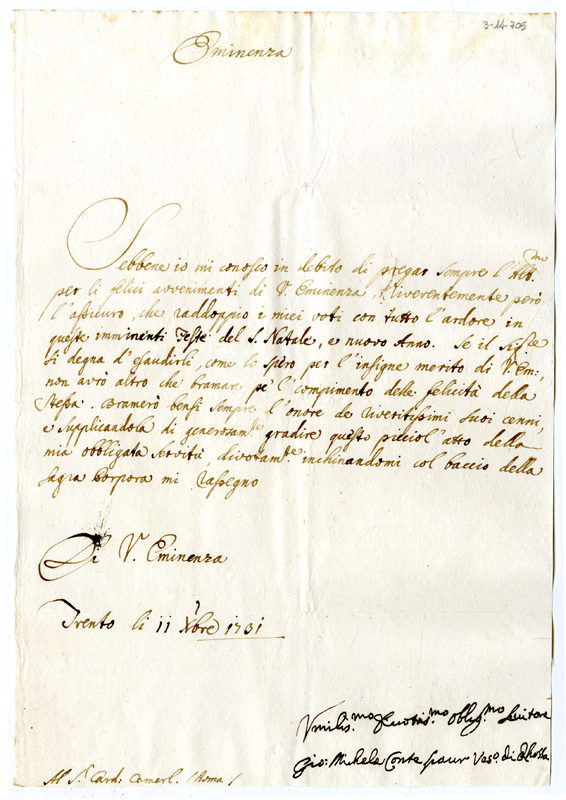 3-14-705
Eminenza
Sebbene io mi conosco in debito di pregar sempre l'Alt.mo
per li felici avvenimenti di V. Eminenza, riverentemente però
l'assicuro, che raddoppio i miei voti con tutto l'ardore in
queste imminenti Feste del S. Natale, e nuovo Anno. Se il
si degna d'esaudirli, come lo spero per l'insigne merito di V. Em:,
non avrò altro che bramare pe' l'compimento delle felicità della
stessa. Bramerò bensì sempre l'onore de riveritissimi suoi cenni,
e supplicandola di generosam.te gradire questo picciol'atto della
mia obbligata servitù divotam.te inchinandomi col baccio della
sagra Porpora mi rassegno
Di V. Eminenza
Trento li 11 Xbre 1731
Vmilis.mo Divotis.mo Obblig.mo Servitore
Gio: Michele Conte Spaur Vesc.o di Rhossa
Al S.r Card: Camerl. (Roma)